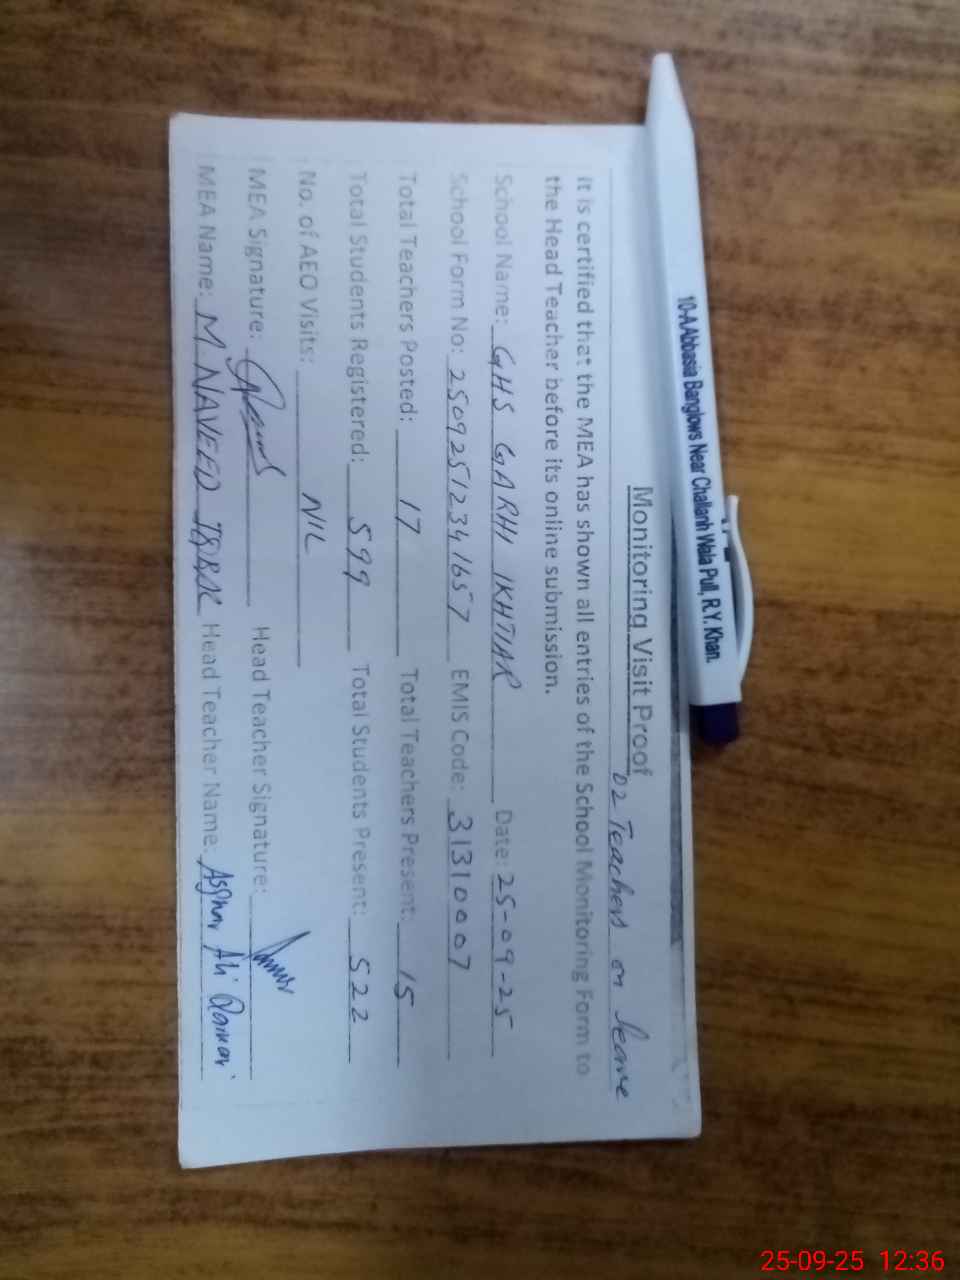 10-A Abbasia Banglows Near Challanh Wala Pull, R.Y. Khan.
Monitoring Visit Proof
02 Teachers on leave
It is certified that the MEA has shown all entries of the School Monitoring Form to
the Head Teacher before its online submission.
School Name: GHS GARHI IKHTIAR Date: 25-09-25
School Form No: 25092512341657 EMIS Code: 31310007
Total Teachers Posted: 17 Total Teachers Present: 15
Total Students Registered: 599 Total Students Present: 522
No. of AEO Visits: NIL
MEA Signature: Head Teacher Signature:
MEA Name: M NAVEED IQBAL Head Teacher Name: Asghar Ali
25-09-25 12:36